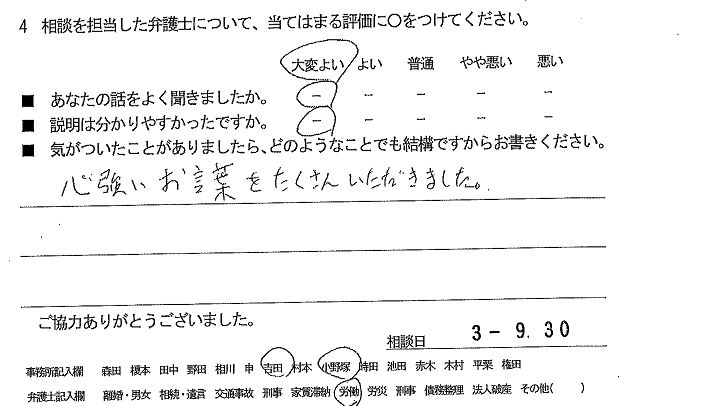 4 相談を担当した弁護士について、当てはまる評価に○をつけてください。
大変よい よい 普通 やや悪い 悪い
■ あなたの話をよく聞きましたか。 － － － － －
■ 説明は分かりやすかったですか。 － － － － －
■ 気がついたことがありましたら、どのようなことでも結構ですからお書きください。
心強いお言葉をたくさんいただきました。
ご協力ありがとうございました。
相談日 3-9.30
事務所記入欄 森田 榎本 田中 野田 相川 申 吉田 村本 小野塚 時田 池田 赤木 木村 平栗 権田
弁護士記入欄 離婚・男女 相続・遺言 交通事故 刑事 家賃滞納 労働 労災 刑事 債務整理 法人破産 その他( )